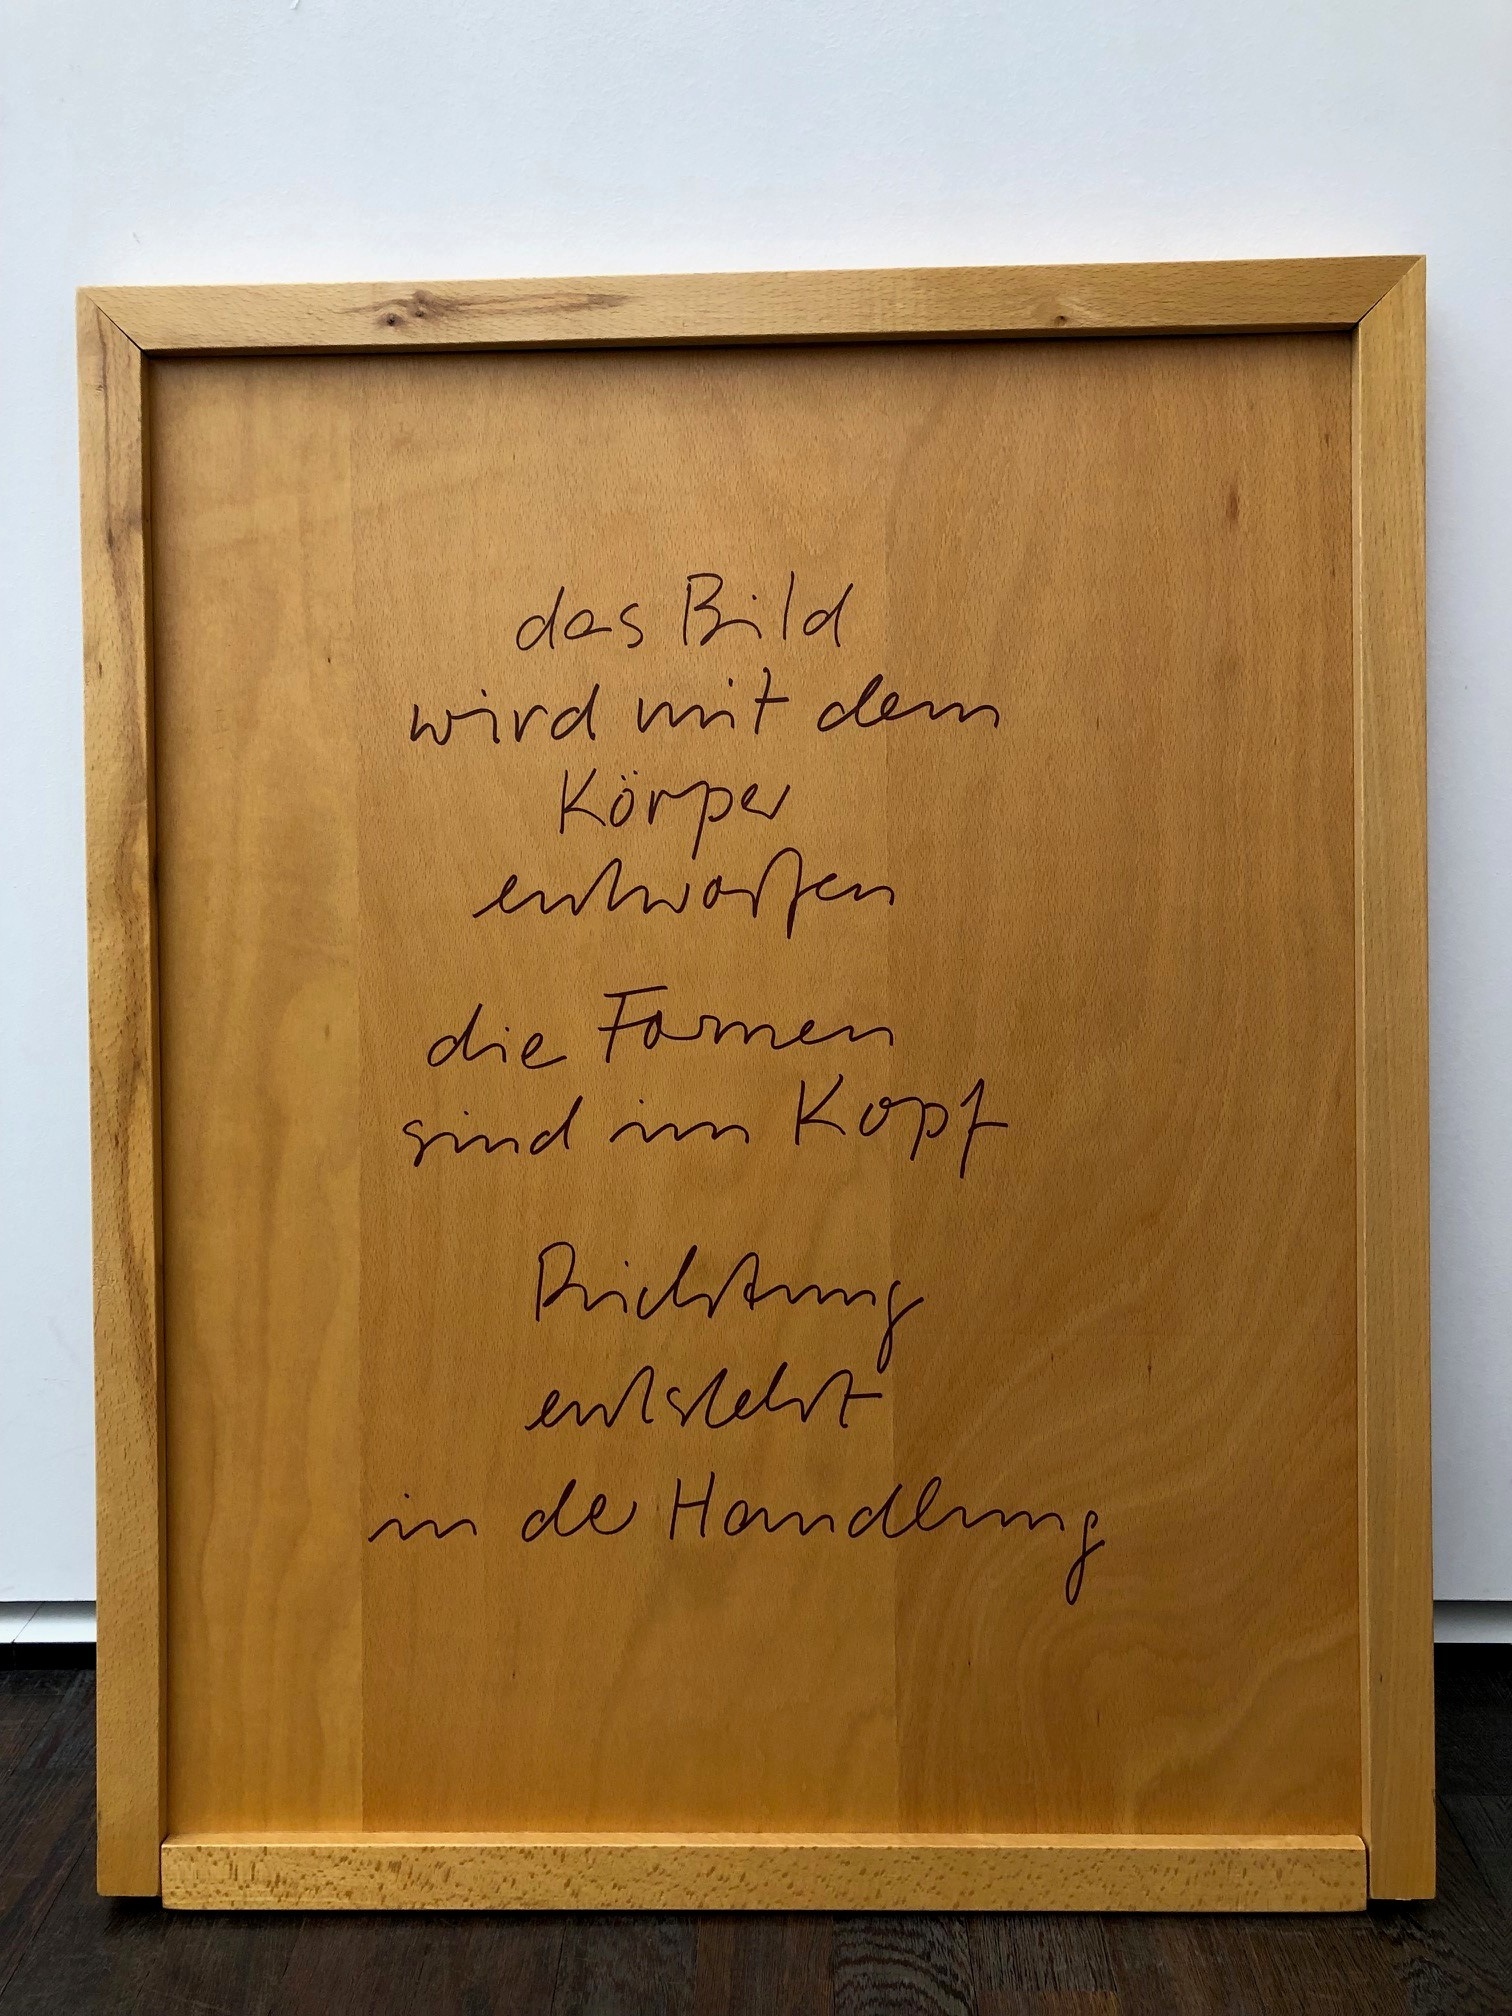 das Bild
wird mit dem
Körper
entworfen
die Formen
sind im Kopf
Richtung
entsteht
in der Handlung